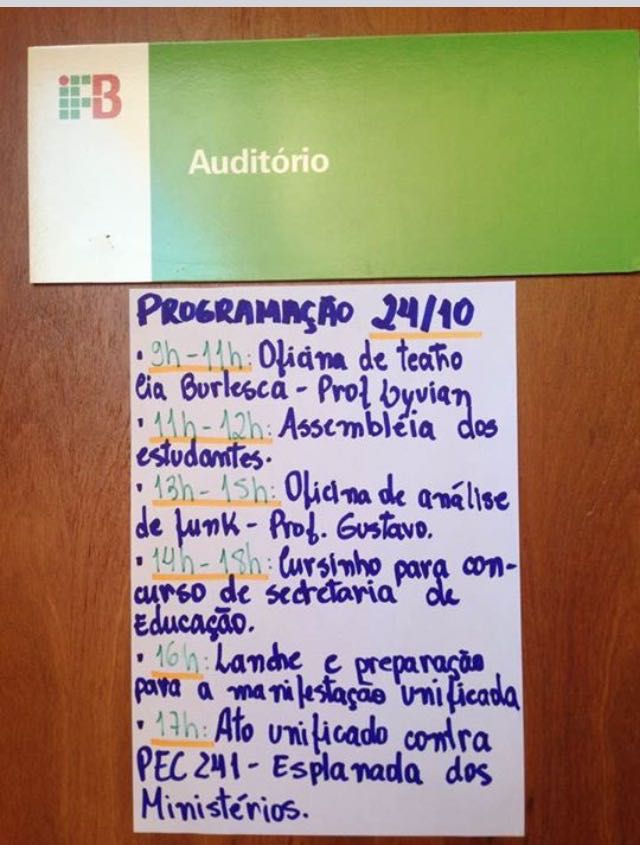 IFB
Auditório
PROGRAMAÇÃO 24/10
• 9h-11h: Oficina de teatro
Cia Burlesca - Prof Lyvian
• 11h-12h: Assembléia dos
estudantes.
• 13h-15h: Oficina de análise
de funk - Prof. Gustavo.
• 14h-18h: Cursinho para con-
curso de secretaria de
Educação.
• 16h: Lanche e preparação
para a manifestação unificada
• 17h: Ato unificado contra
PEC 241 - Esplanada dos
Ministérios.